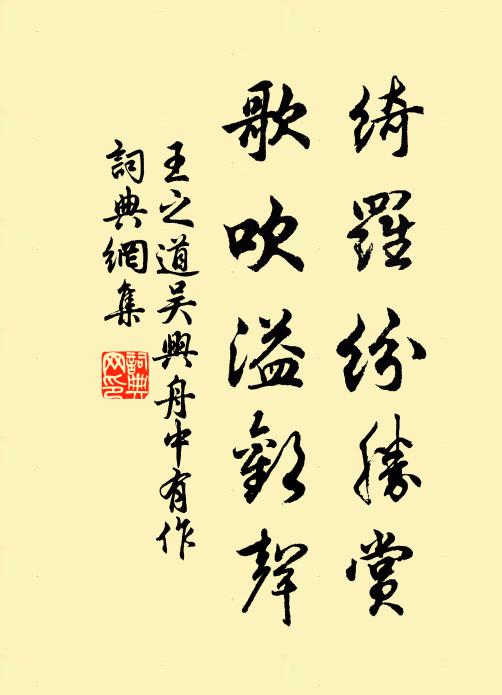 綺羅紛勝賞
歌吹溢歡聲
王之道吳興舟中有作
詞典網集
詞典网印